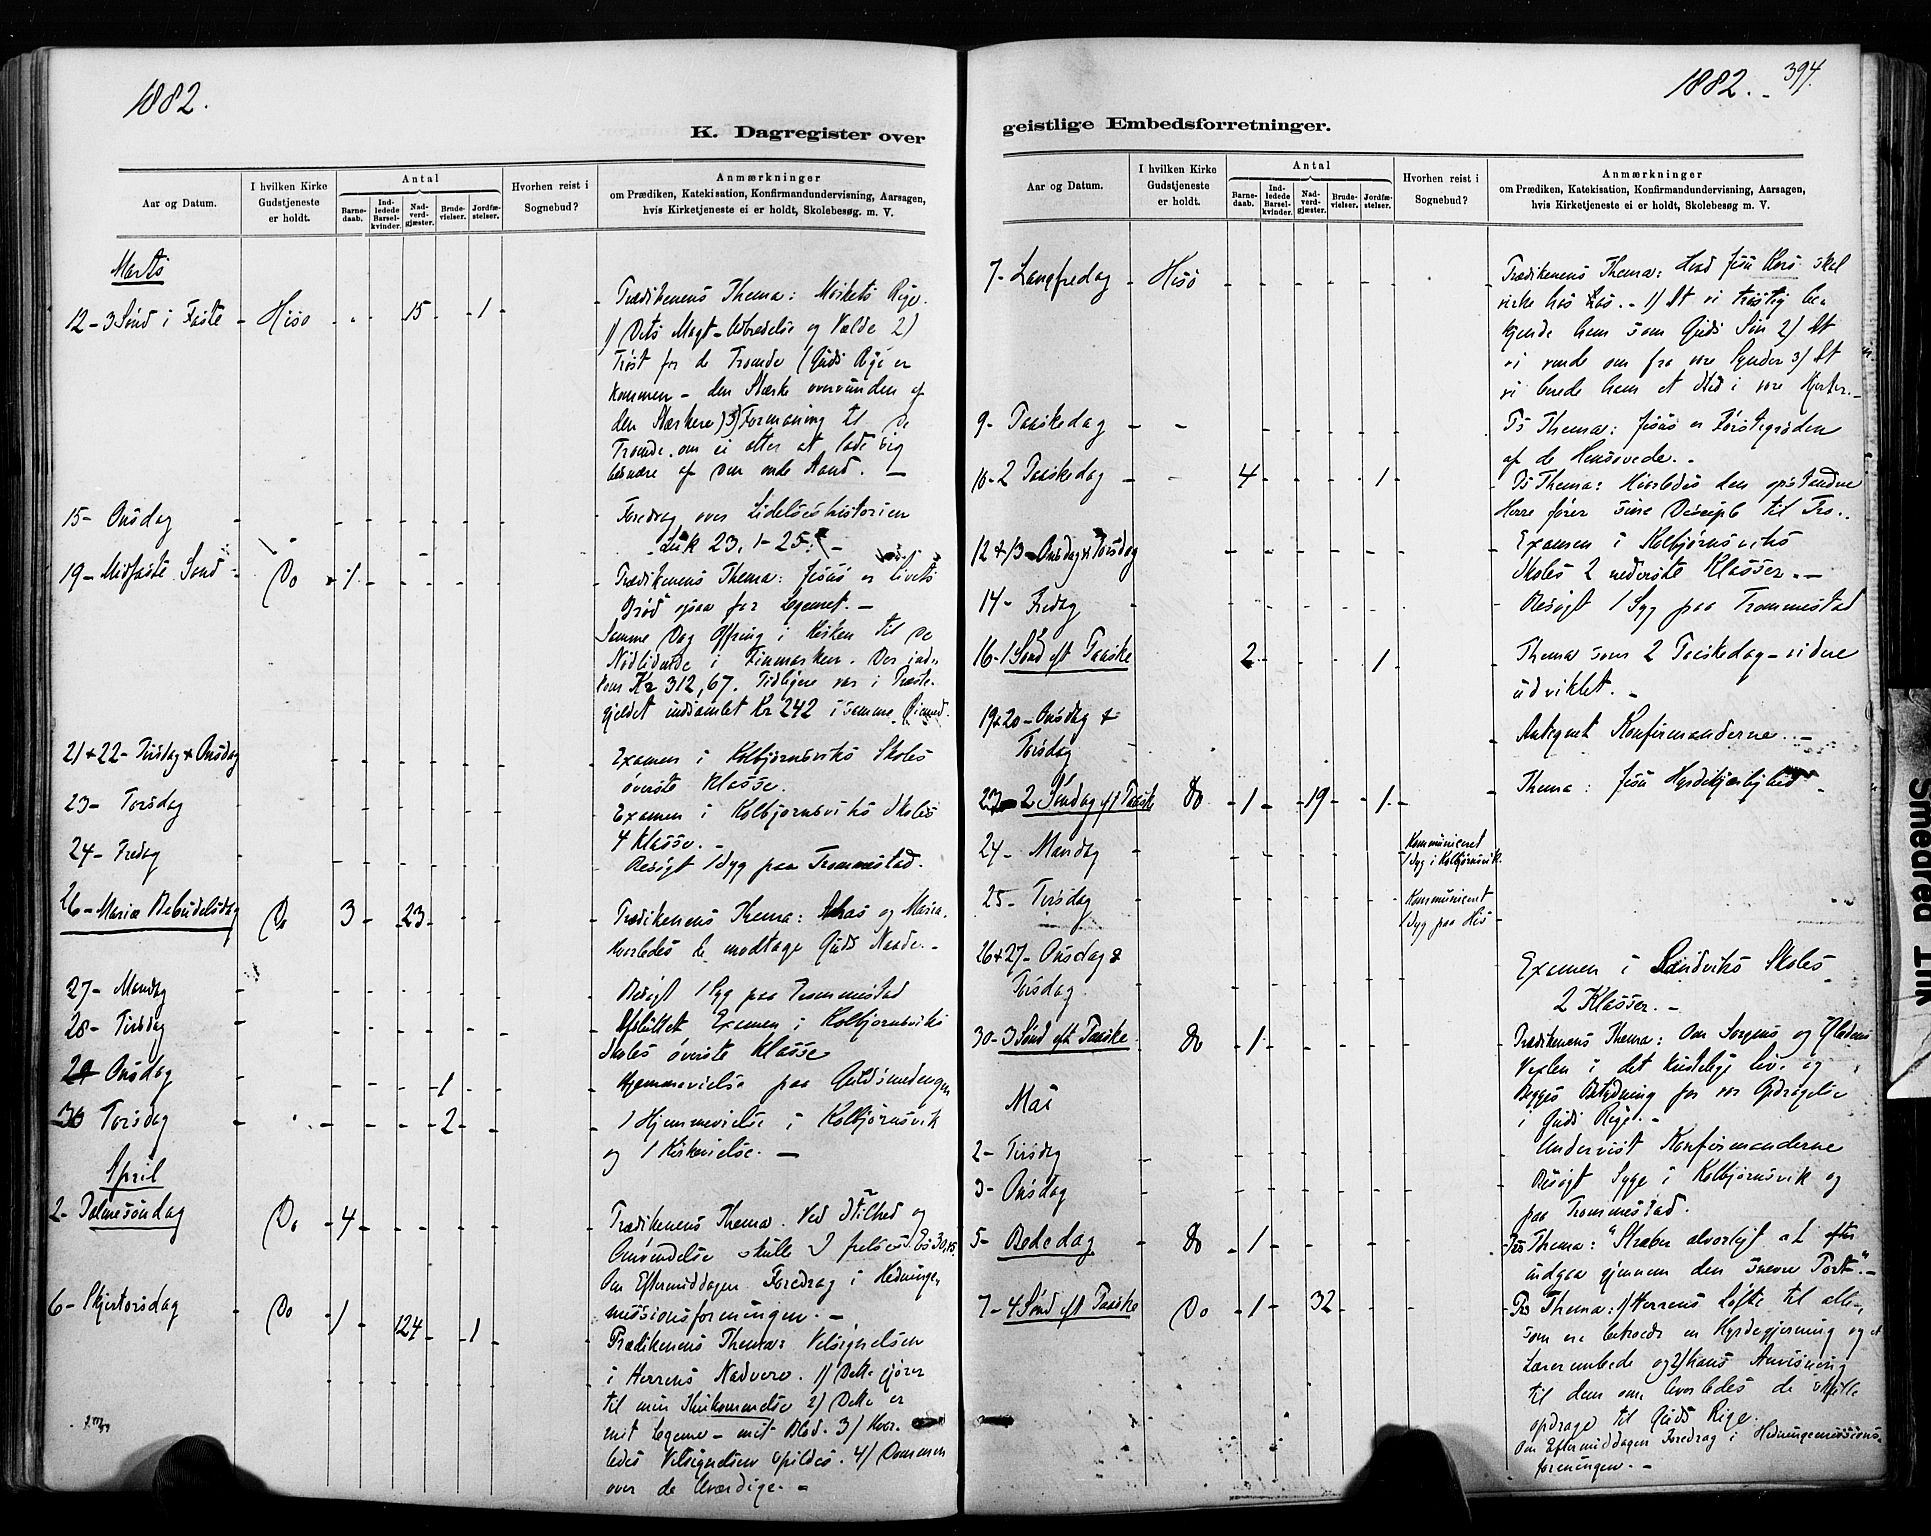 1882.
K. Dagregister over
Aar og Datum.
I hvilken Kirke Gudstjeneste er holdt.
Antal
Barnedaab.
Indledede Barselkvinder.
Nadverdgjæster.
Brudevielser.
Jordfæstelser.
Hvorhen reist i Sognebud?
Anmærkninger
om Prædiken, Katekisation, Konfirmandundervisning, Aarsagen,
hvis Kirketjeneste ei er holdt, Skolebesøg m. V.
Marts
12 - 3 Sønd i Faste - Hisø - 15 - 1 - Prædikenens Thema: Mørkets Rige.
1) Dets Magt - Udbredelse og Vælde 2)
Trøst for de Troende (Guds Rige er
kommen - den Stærke overvunden af
den Stærkere) 3) Formaning til de
Troende om ei atter at lade sig
besnære af den onde Aand. -
15 - Onsdag - Foredrag over Lidelseshistorien
Luk 23, 1-25. -
19 - Midfaste Sønd - Do - 1 - Prædikenens Thema: Jesus er Livets
Brød ogsaa for Legemet. -
Samme Dag Offring i Kirken til de
Nødlidende i Finmarken. Der ind-
kom Kr 312,67. Tidligere var i Præste-
gjeldet indsamlet Kr 242 i samme Øiemed.
21 + 22 - Tirsdag + Onsdag - Examen i Kolbjørnsviks Skoles
øverste Klasse.
23 - Torsdag - Examen i Kolbjørnsviks Skoles
4 Klasse. -
24 - Fredag - Besøgt 1 Syg paa Trommestad.
26 - Mariæ Bebudelsdag - Do - 3 - 23 - Prædikenens Thema: og Maria.
Hvorledes de modtage Guds Naade. -
27 - Mandag - Besøgt 1 Syg paa Trommestad
28 - Tirsdag - Afsluttet Examen i Kolbjørnsviks
Skoles øverste Klasse
29 Onsdag - 1 - Hjemmevielse paa Guldsmedengen
30 Torsdag - 2 - 1 Hjemmevielse i Kolbjørnsvik
og 1 Kirkevielse. -
April
2 - Palmesøndag - Do - 4 - Prædikenens Thema. Ved Stilhed og
Omvendelse skulle I frelses. Es 30,15.
Om Eftermiddagen Foredrag i Hedninge-
missionsforeningen. -
6 - Skjertorsdag - Do - 1 - 124 - 1 - Prædikenens Thema: Velsignelsen
i Herrens Nadvere. 1) Dette gjører
til min Ihukommelse 2) Dette er
mit Legeme - mit Blod. 3) Hvor-
ledes Velsignelsen spildes. 4) Dommen
over de Uværdige. -
1882. - 394.
geistlige Embedsforretninger.
Aar og Datum.
I hvilken Kirke Gudstjeneste er holdt.
Antal
Barnedaab.
Indledede Barselkvinder.
Nadverdgjæster.
Brudevielser.
Jordfæstelser.
Hvorhen reist i Sognebud?
Anmærkninger
om Prædiken, Katekisation, Konfirmandundervisning, Aarsagen,
hvis Kirketjeneste ei er holdt, Skolebesøg m. V.
7 - Langfredag - Hisø - Prædikenens Thema: Hvad Jesu Kors skal
virke hos os. - 1) At vi trøstig be-
kjende ham som Guds Søn 2) At
vi vende om fra vore Synder 3) At
vi berede ham et Sted i vore Hjerter. -
9 - Paaskedag - Ps Thema: Jesus er Førstegrøden
af de Hensovede. -
10 - 2 Paaskedag - 4 - 1 - Ps Thema: Hvorledes den opstandne
Herre fører sine Disciple til Tro. -
12 + 13 - Onsdag + Torsdag - Examen i Kolbjørnsviks
Skoles 2 nederste Klasser. -
14 - Fredag - Besøgt 1 Syg paa Trommestad
16 - 1 Sønd eft Paaske - 2 - 1 - Thema som 2 Paaskedag - videre
udviklet. -
19 + 20 - Onsdag +
Torsdag - Antegnet Konfirmanderne. -
23 - 2 Søndag eft Paaske - Do - 1 - 19 - 1 - Thema: Jesu Hyrdekjærlighed -
24 - Mandag - Kommuniceret
1 Syg i Kolbjørnsvik.
25 - Tirsdag - Kommuniceret
1 Syg paa His
26 + 27 - Onsdag &
Torsdag - Examen i Sandviks Skoles
2 Klasser. -
30 - 3 Sønd eft Paaske - Do - 1 - Prædikenens Thema: Om Sorgens og Glædens
Vexlen i det kristelige Liv, og
Begges Betydning for vor Opdragelse
i Guds Rige. -
Mai
2 - Tirsdag - Undervist Konfirmanderne
3 - Onsdag - Besøgt Syge i Kolbjørnsvik og
paa Trommestad.
5 - Bededag - Do - 1 - Ps Thema: "Stræber alvorligt at efter
indgaa gjennem den snevre Port". -
7 - 4 Sønd eft Paaske - Do - 1 - 32 - Ps Thema: 1) Herrens Løfte til alle,
som ere betroede en Hyrdegjerning og et
Lærerembede og 2) hans Anvisning
til dem om hvorledes de skulle
opdrage til Guds Rige.
Om Eftermiddagen Foredrag i Hedningemissions-
foreningen. -
Smedred Tilk